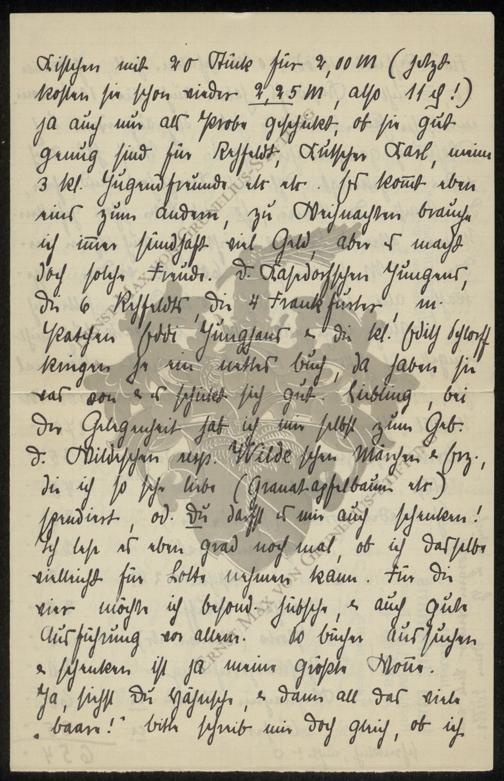 Kistchen mit 20 Stück für 2,00 M (jetzt
kosten sie schon wieder 2,25 M, also 11 !)
ja auch nur als Probe geschickt, ob sie gut
genug sind für Rehfeldt, Kutscher Karl, meine
3 kl. Jugendfreunde etc etc. Es kom̅t eben
eins zum andern, zu Weihnachten brauche
ich im̅er sündhaft viel Geld, aber es macht
doch solche Freude. D. Jungens,
die 6 Rehfeldts die 4 Frankfurter, m.
Patchen Eddi Junghans & die kl. Edith Schorff
kriegen je ein nettes Buch, da haben sie
was von & es schickt sich gut. Liebling, bei
der Gelegenheit hab ich mir selbst zum Geb.
d. Wildeschen resp. Wilde'schen Märchen & Erz.,
die ich so sehr liebe (Granatapfelbaum etc)
spendiert, od. Du darfst es mir auch schenken!
Ich lese es eben grad noch mal, ob ich dasselbe
vielleicht für Lotte nehmen kann. Für die
vier möchte ich besond. hübsche, & auch gute
Ausführung vor allem. So Bücher aussuchen
& schenken ist ja meine größte Won̅e.
Ja, siehst Du, & dann all das viele
„baare!" Bitte schreib mir doch gleich, ob ich
ERNST MAX VON CORNELIUS-STIFTUNG